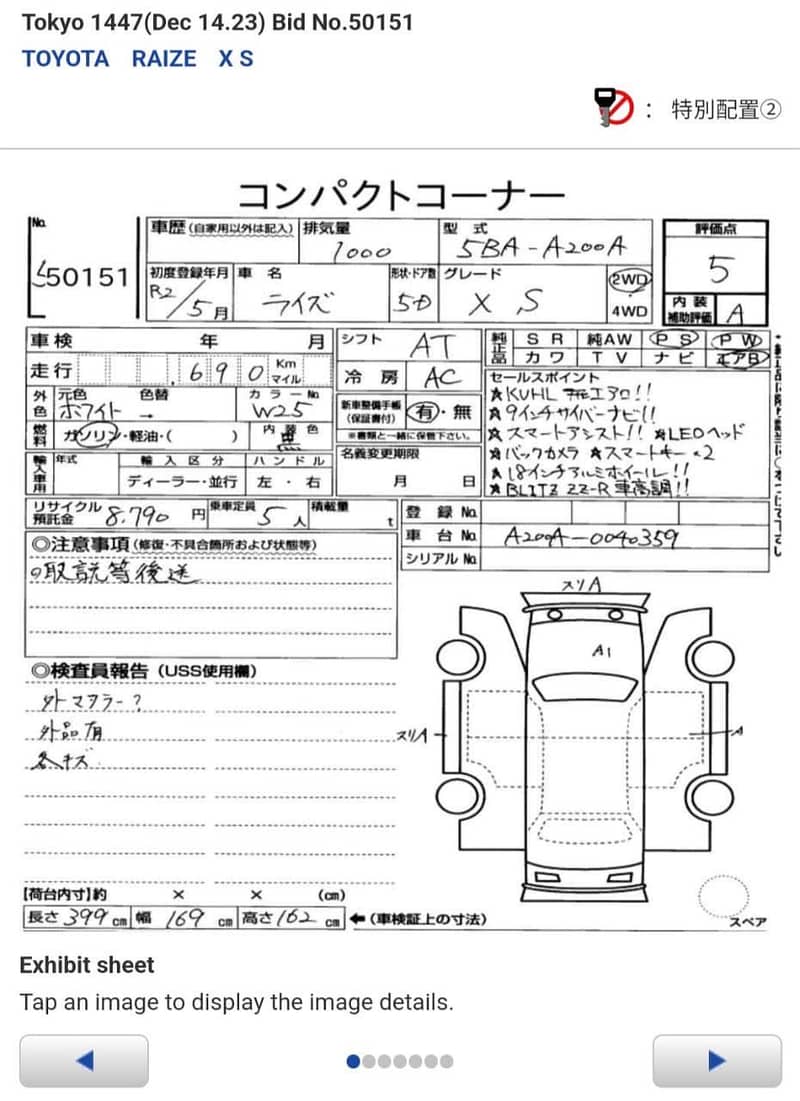 Tokyo 1447(Dec 14.23) Bid No.50151
TOYOTA RAIZE X S
: 特別配置②
コンパクトコーナー
No.
50151
車歴(自家用以外は記入)
排気量
1000
型式
5BA-A200A
評価点
5
初度登録年月
R2/5月
車名
ライズ
形状・ドア数
5D
グレード
X S
2WD
4WD
内装補助評価
A
車検 年 月
シフト
AT
純正品
SR 純AW PS PW
カワ TV ナビ エアB
走行
690
Km
マイル
冷房
AC
セールスポイント
★KUHL フルエアロ!!
★9インチサイバーナビ!!
★スマートアシスト!! ★LEDヘッド
★バックカメラ ★スマートキー×2
★18インチアルミホイール!!
★BLITZ ZZ-R 車高調!!
外色
元色
ホワイト
色替
→
カラーNo.
W25
新車整備手帳
(保証書付)
有・無
※書類と一緒に保管下さい。
燃料
ガソリン・軽油・( )
内装色
黒
名義変更期限
月 日
輸入車用
年式
輸入区分
ディーラー・並行
ハンドル
左・右
リサイクル預託金
8.790 円
乗車定員
5人
積載量
t
登録No.
車台No.
A200A-0040359
シリアルNo.
◎注意事項(修復・不具合箇所および状態等)
○取説等後送
◎検査員報告(USS使用欄)
外マフラー?
外品有
各キズ
スリA
A1
スリA
A
【荷台内寸】約 × × (cm)
長さ399cm 幅169cm 高さ162cm ←(車検証上の寸法)
スペア
Exhibit sheet
Tap an image to display the image details.